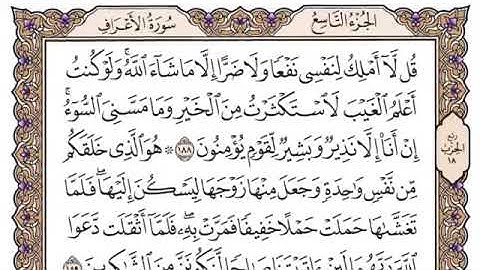 الجزء التاسع
سورة الأعراف
قُل لَّآ أَمۡلِكُ لِنَفۡسِي نَفۡعٗا وَلَا ضَرًّا إِلَّا مَا شَآءَ ٱللَّهُۚ وَلَوۡ كُنتُ
أَعۡلَمُ ٱلۡغَيۡبَ لَٱسۡتَكۡثَرۡتُ مِنَ ٱلۡخَيۡرِ وَمَا مَسَّنِيَ ٱلسُّوٓءُۚ
إِنۡ أَنَا۠ إِلَّا نَذِيرٞ وَبَشِيرٞ لِّقَوۡمٖ يُؤۡمِنُونَ ١٨٨ ۞ هُوَ ٱلَّذِي خَلَقَكُم
ربع
الحزب
١٨
مِّن نَّفۡسٖ وَٰحِدَةٖ وَجَعَلَ مِنۡهَا زَوۡجَهَا لِيَسۡكُنَ إِلَيۡهَاۖ فَلَمَّا
تَغَشَّىٰهَا حَمَلَتۡ حَمۡلًا خَفِيفٗا فَمَرَّتۡ بِهِۦۖ فَلَمَّآ أَثۡقَلَت دَّعَوَا
ٱللَّهَ رَبَّهُمَا لَئِنۡ ءَاتَيۡتَنَا صَٰلِحٗا لَّنَكُونَنَّ مِنَ ٱلشَّٰكِرِينَ ١٨٩